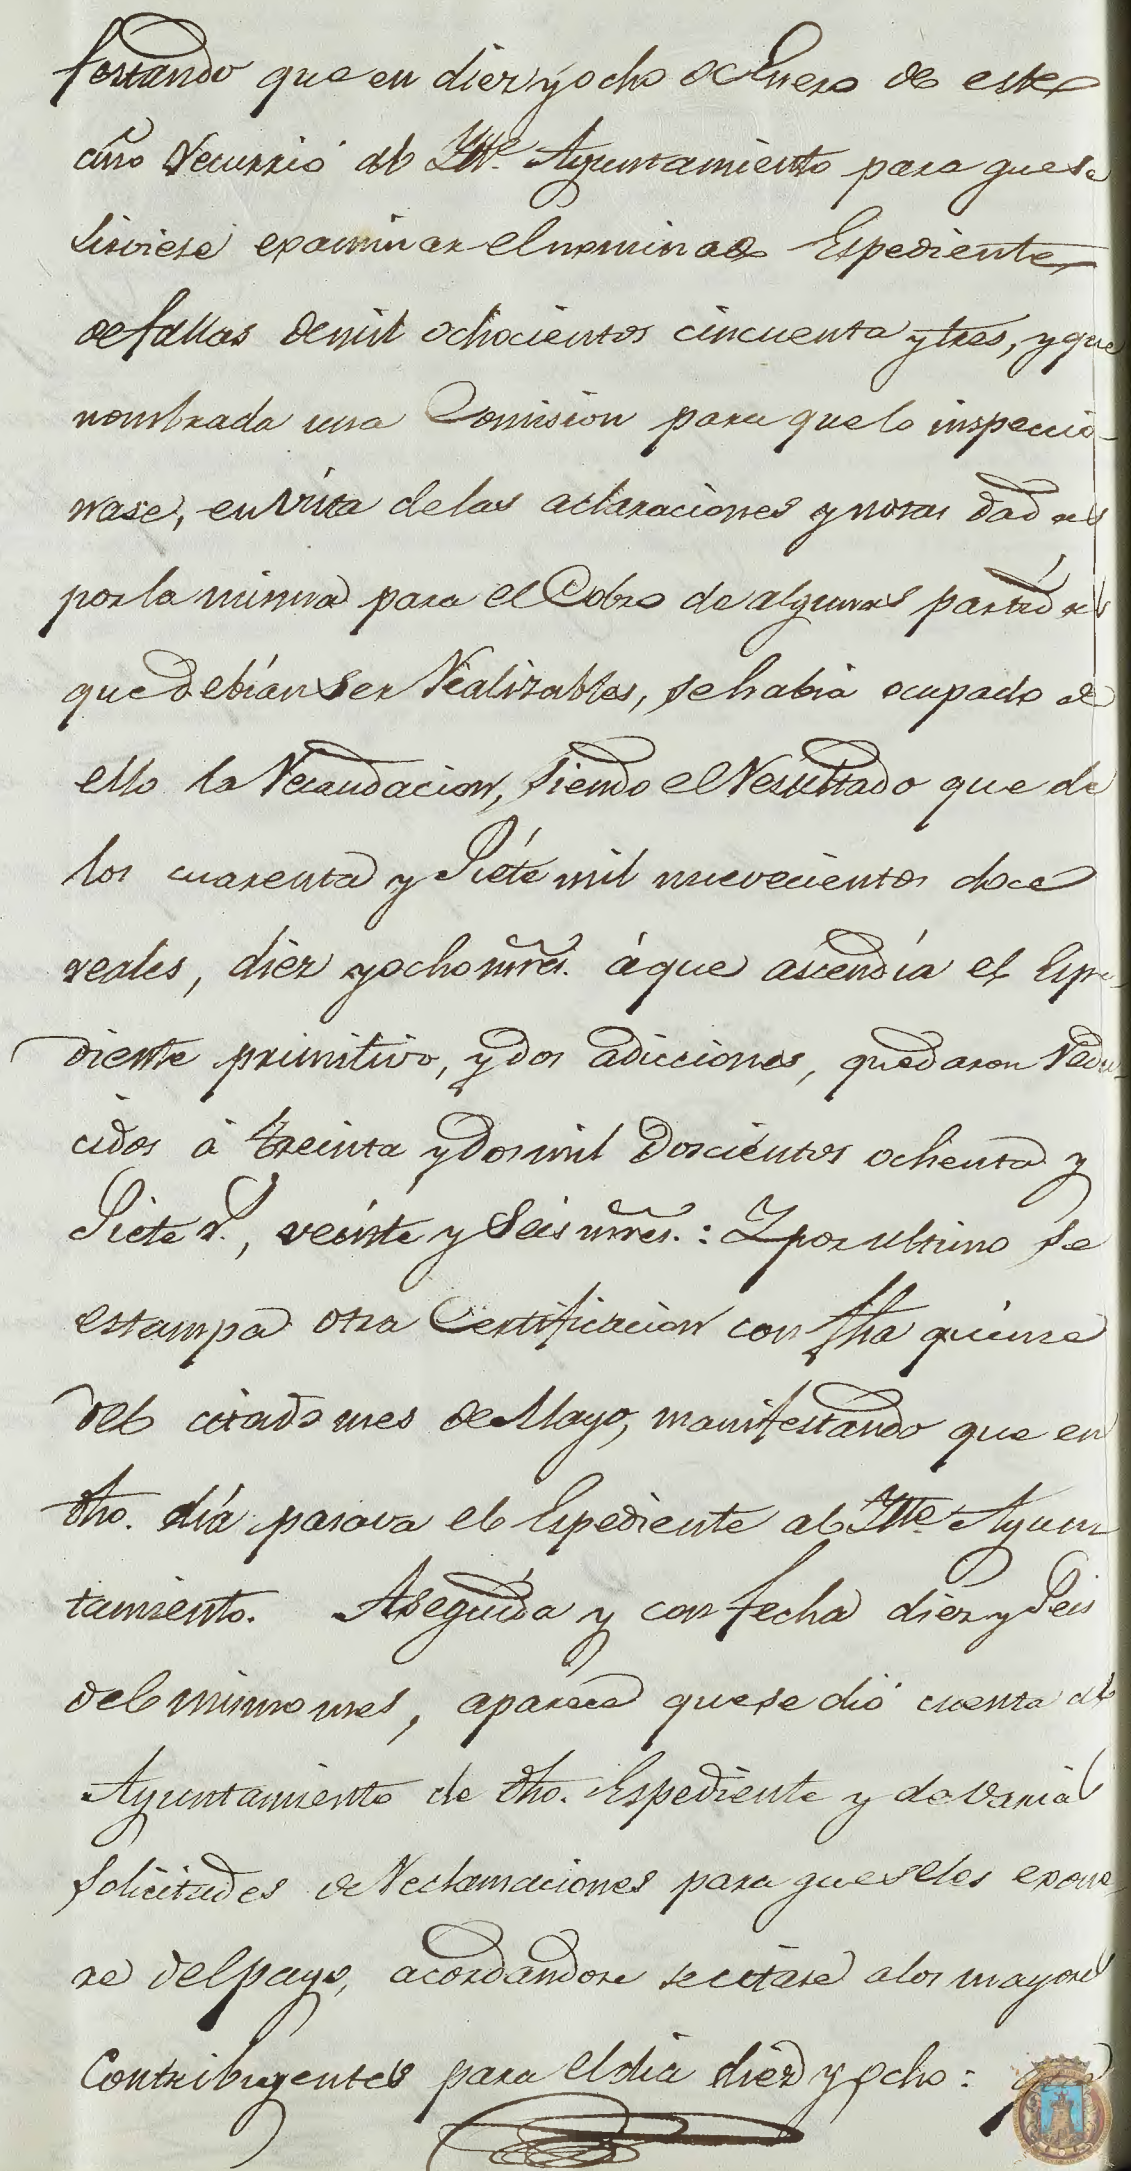 festando que en diez y ocho de Enero de este
año recurrió al Ylle. Ayuntamiento para que se
sirviese examinar el nominado Espediente
de fallas de mil ochocientos cincuenta y tres, y que
nombrada una Comision para que lo inspeccio-
nase, en vista de las aclaraciones y notas dadas
por la misma para el Cobro de algunas partidas
que debían ser realizables, se habia ocupado de
ello la recaudacion, siendo el resultado que de
los cuarenta y Siete mil nuevecientos doce
reales, diez y ocho mrs. á que ascendía el Espe-
diente primitivo, y dos adicciones, quedaron redu-
cidos á treinta y dos mil doscientos ochenta y
Siete r., veinte y Seis mrs.: Y por ultimo se
estampa otra Certificacion con fha quince
del citado mes de Mayo, manifestando que en
dho. día pasava el Espediente al Ylle. Ayun-
tamiento. Aseguida y con fecha diez y Seis
del mismo mes, aparece que se dió cuenta al
Ayuntamiento de dho. Espediente y de varias
solicitudes de reclamaciones para que se les exone-
re del pago, acordandose se citase a los mayores
Contribuyentes para el dia diez y ocho: